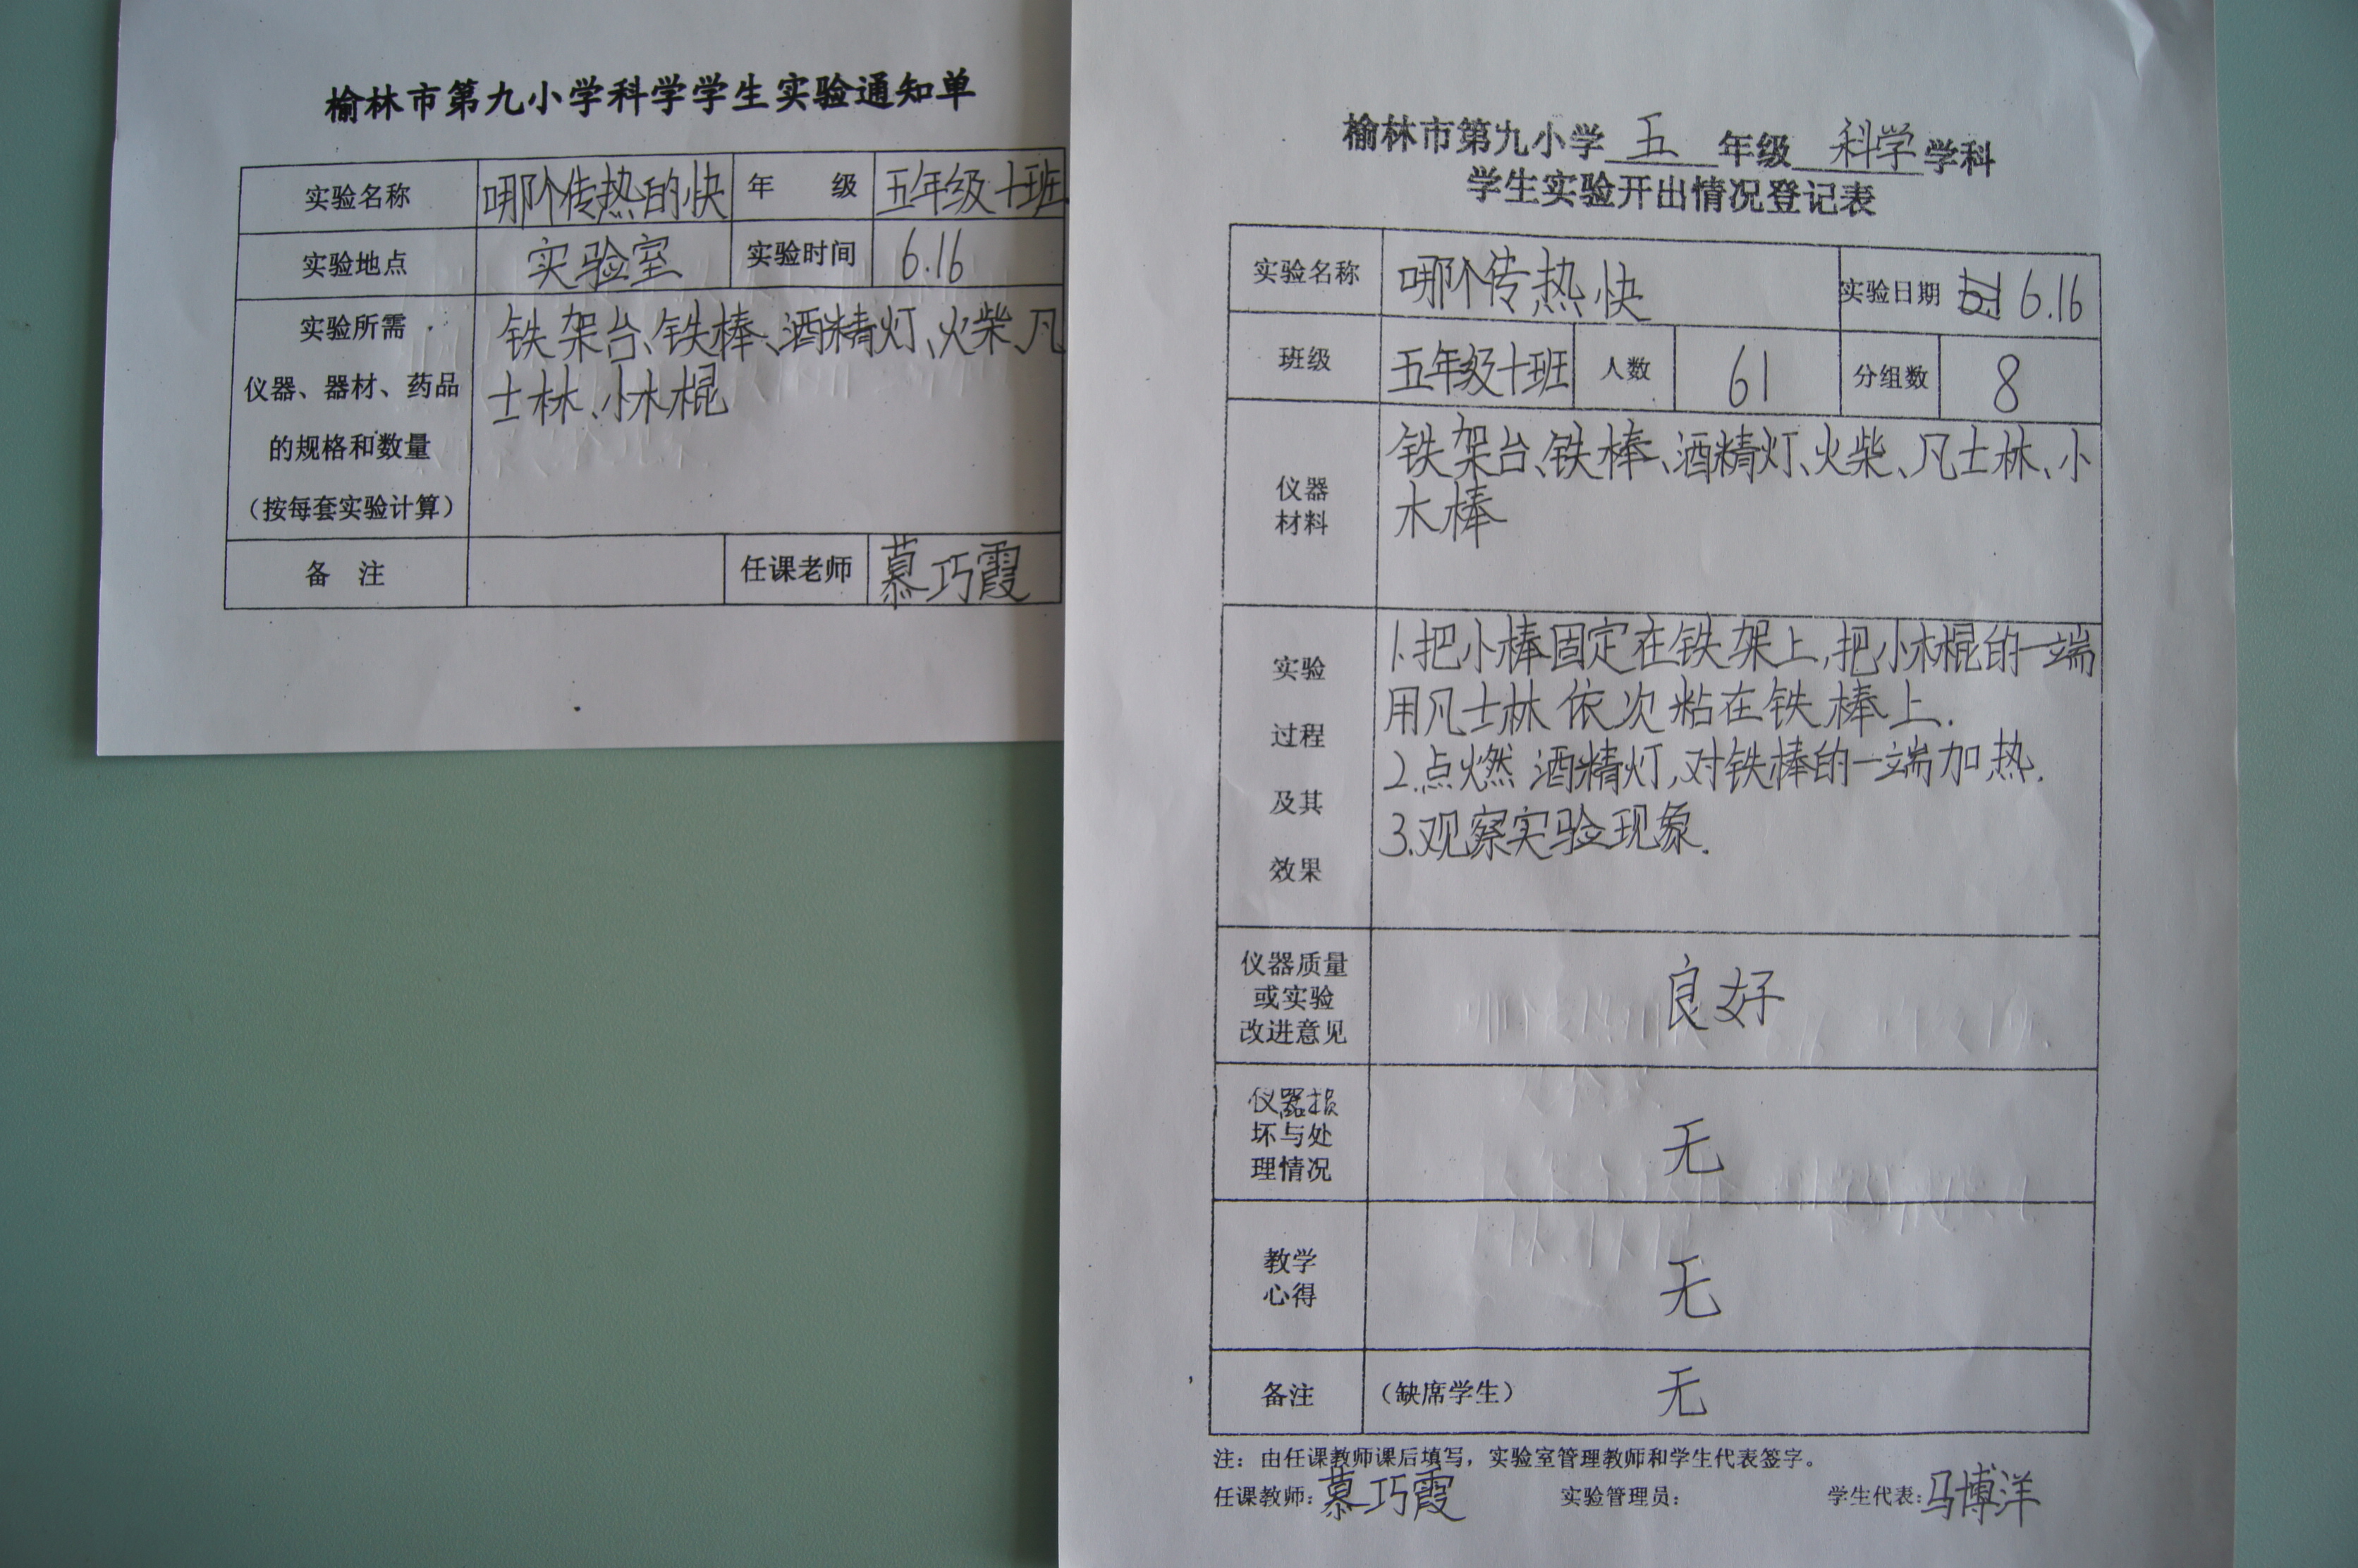 榆林市第九小学科学学生实验通知单
实验名称 哪个传热的快 年 级 五年级十班
实验地点 实验室 实验时间 6.16
实验所需
仪器、器材、药品
的规格和数量
（按每套实验计算）
铁架台、铁棒、酒精灯、火柴、凡
士林、小木棍
备 注 任课老师 慕巧霞
榆林市第九小学 五 年级 科学 学科
学生实验开出情况登记表
实验名称 哪个传热快 实验日期 6.16
班级 五年级十班 人数 61 分组数 8
仪器
材料
铁架台、铁棒、酒精灯、火柴、凡士林、小
木棒
实验
过程
及其
效果
1.把小棒固定在铁架上,把小木棍的一端
用凡士林依次粘在铁棒上.
2.点燃酒精灯,对铁棒的一端加热.
3.观察实验现象.
仪器质量
或实验
改进意见
良好
仪器损
坏与处
理情况
无
教学
心得
无
备注 （缺席学生） 无
注：由任课教师课后填写，实验室管理教师和学生代表签字。
任课教师：慕巧霞 实验管理员： 学生代表：马博洋